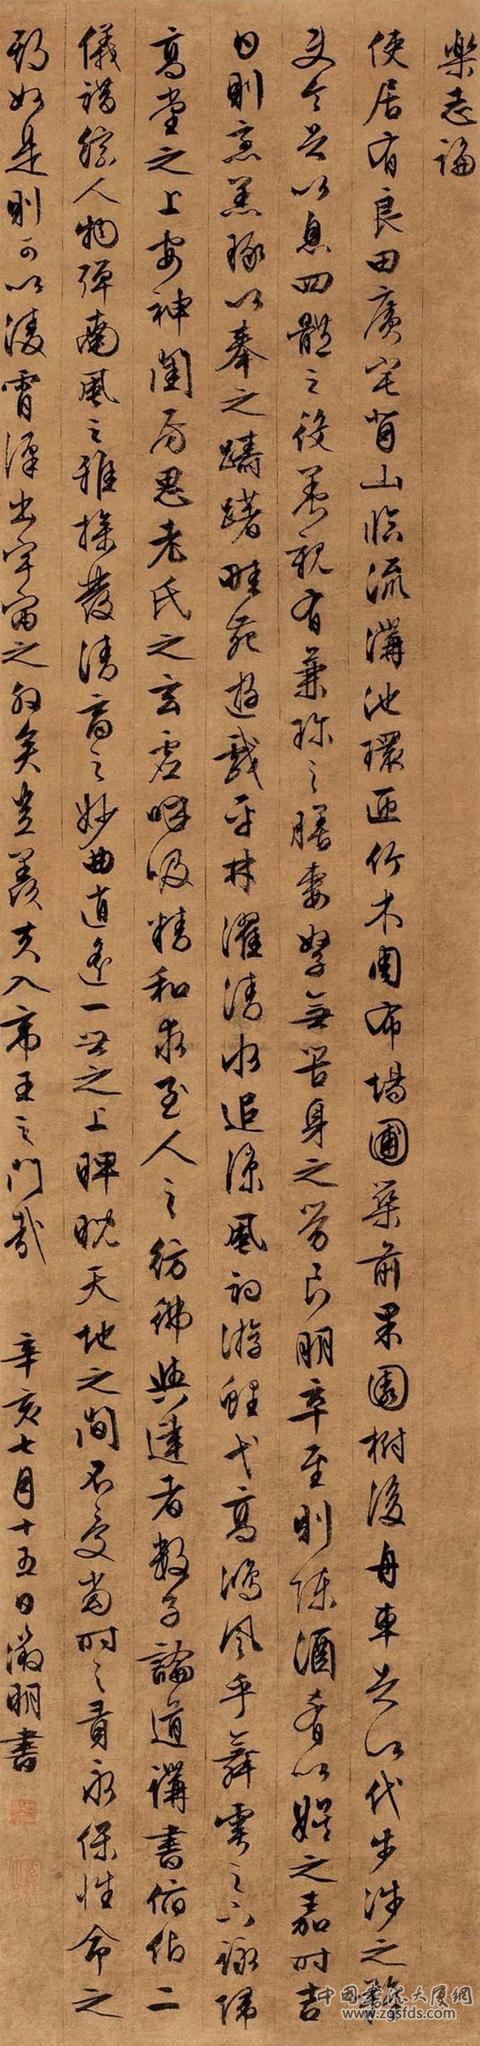 樂志論
使居有良田廣宅背山臨流溝池環匝竹木周布場圃築前果園樹後舟車足以代步涉之難
使令足以息四體之役養親有兼珍之膳妻孥無苦身之勞良朋萃至則陳酒肴以娛之嘉時吉
日則烹羔豚以奉之躊躇畦苑遊戲平林濯清水追涼風釣游鯉弋高鴻風乎舞雩之下詠歸
高堂之上安神閨房思老氏之玄虛呼吸精和求至人之彷彿與達者數子論道講書俯仰二
儀錯綜人物彈南風之雅操發清商之妙曲逍遙一世之上睥睨天地之間不受當時之責永保性命之
期如是則可以凌霄漢出宇宙之外矣豈羨夫入帝王之門哉 辛亥七月十五日徵明書
www.zgsfds.com